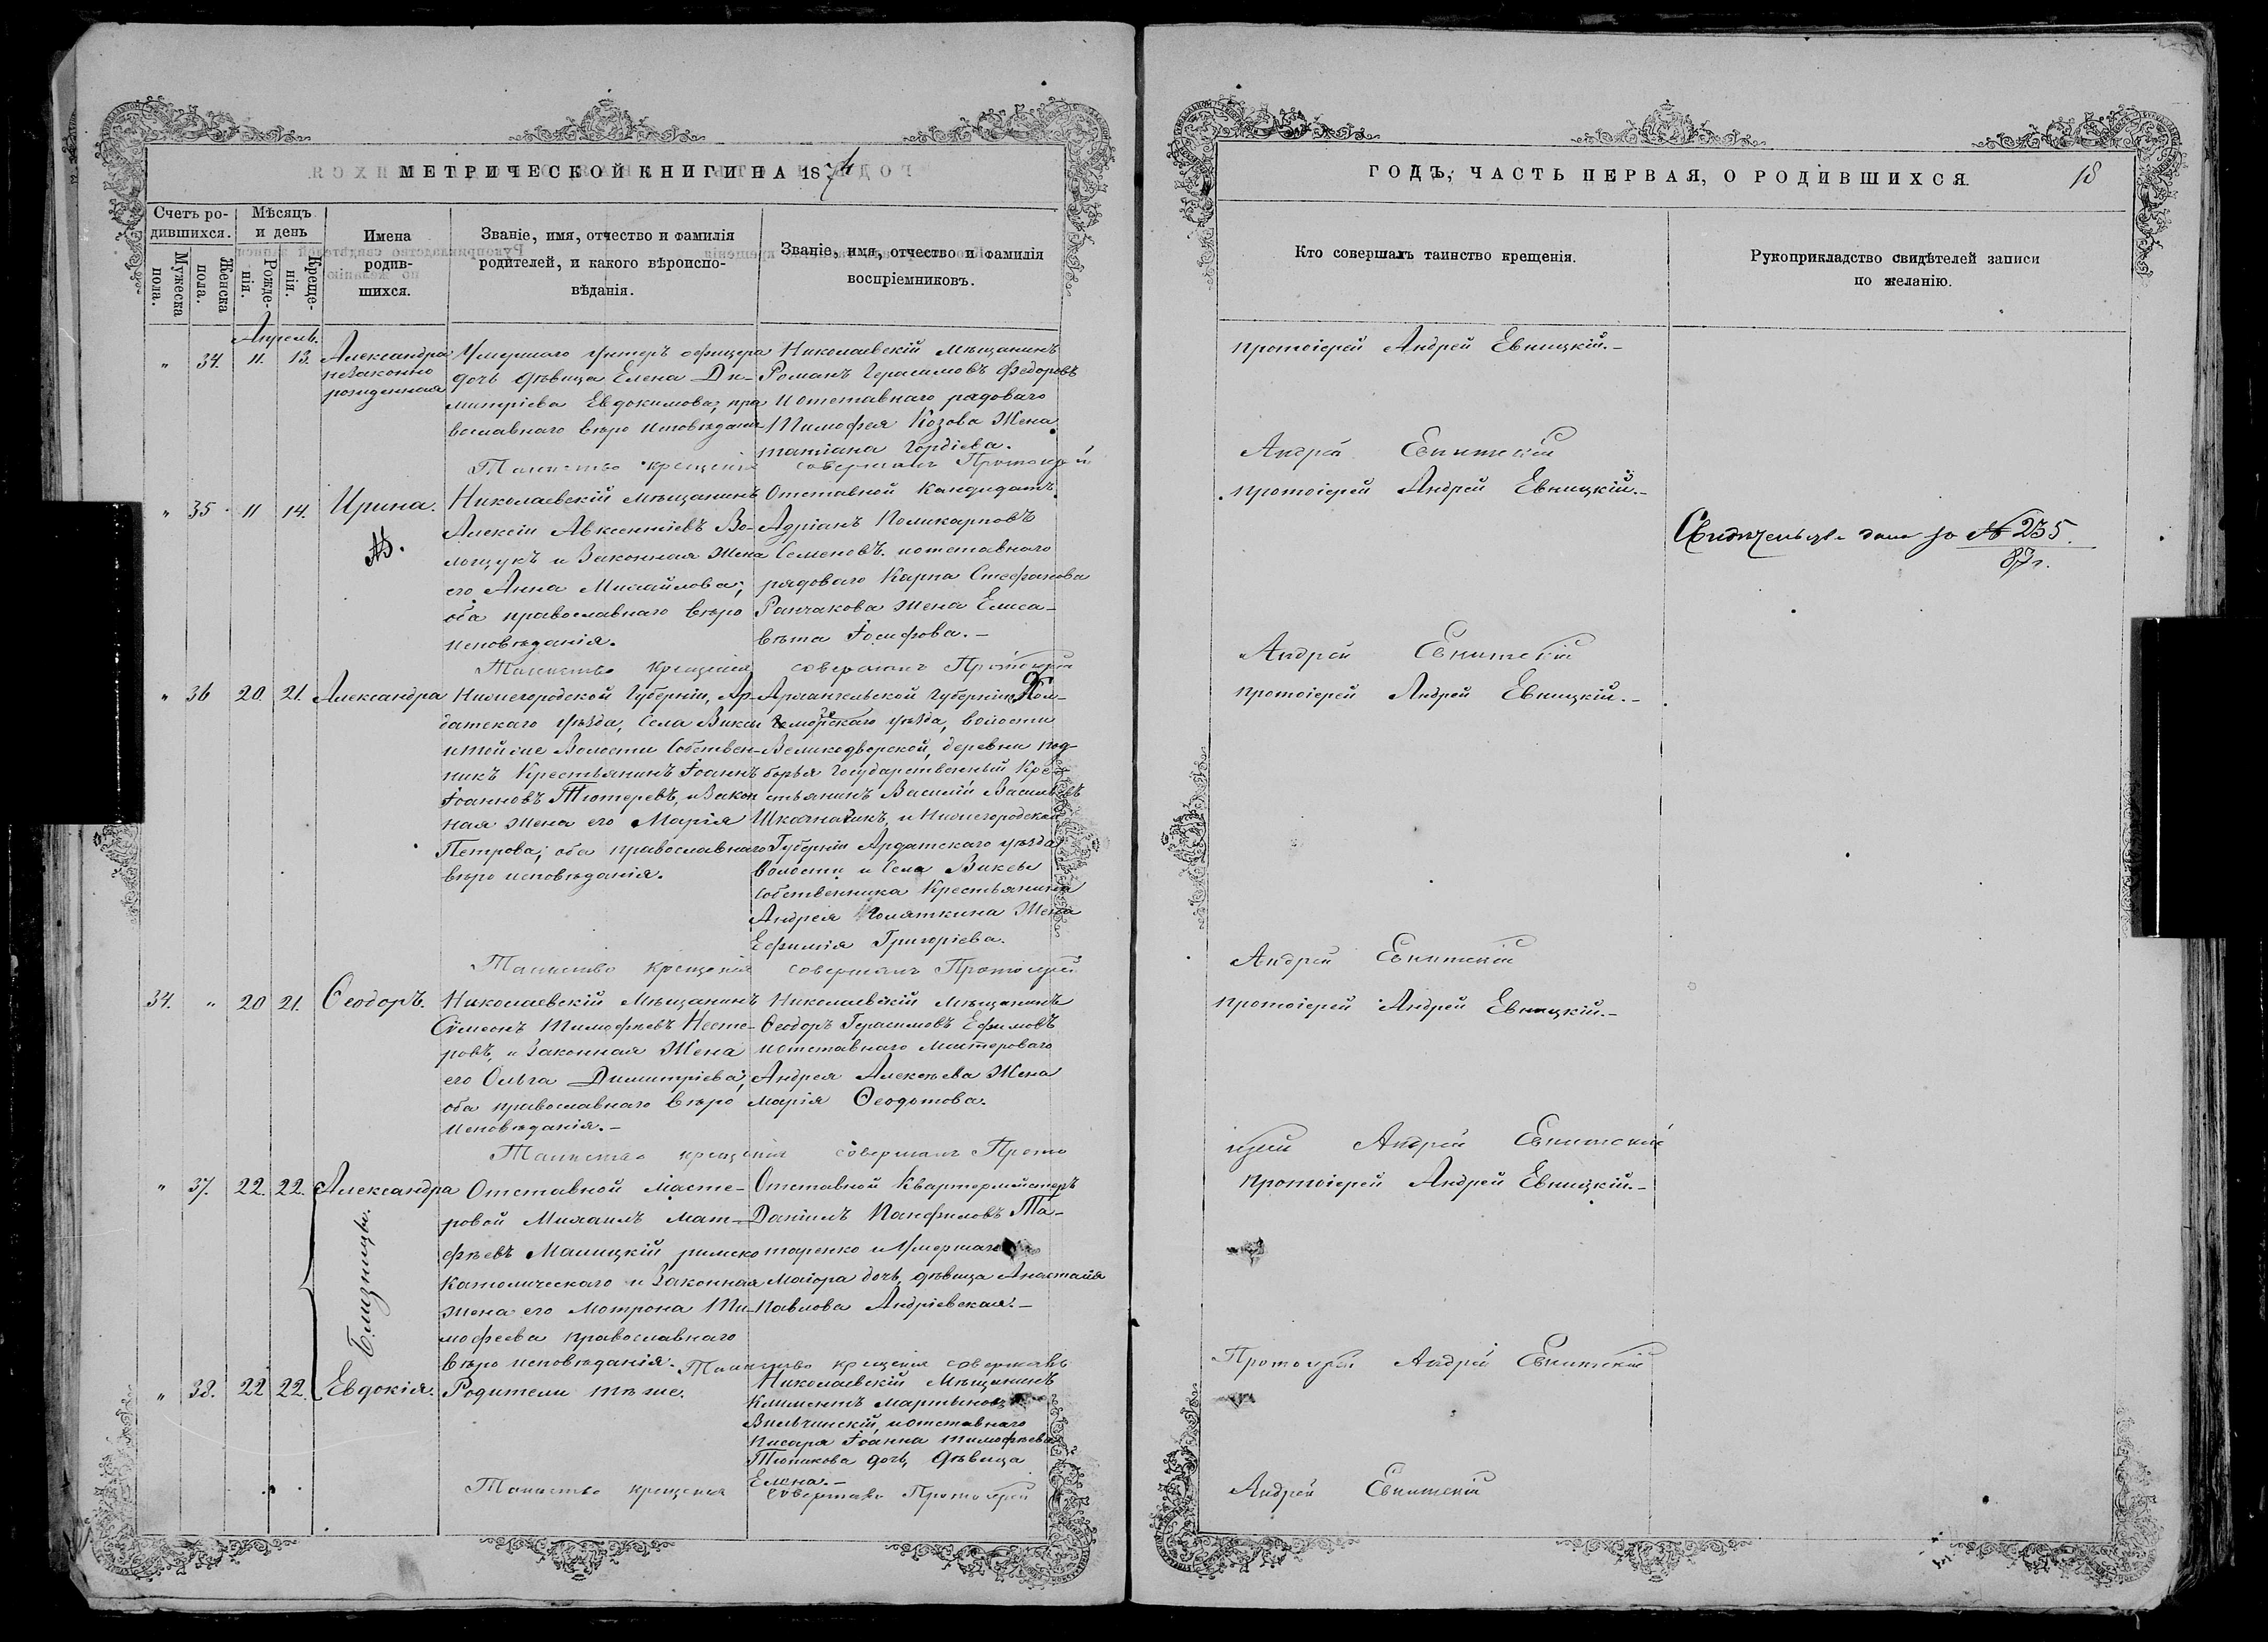 МЕТРИЧЕСКОЙ КНИГИ НА 1874
Счетъ ро-
дившихся.
Мужеска
пола.
Женска
пола.
Мѣсяцъ
и день
Рожде-
нія.
Креще-
нія.
Имена
родив-
шихся.
Званіе, имя, отчество и фамилія
родителей, и какого вѣроиспо-
вѣданія.
Званіе, имя, отчество и фамилія
воспріемниковъ.
Апрель.
" 34. 11. 13. Александра
незаконно
рожденная
Умершаго унтеръ офицера
дочь дѣвица Елена Ди-
митріева Евдокимова, пра
вославнаго вѣро исповѣданія
Николаевскій мѣщанинъ
Романъ Герасимовъ Федоровъ
и отставнаго рядоваго
Тимофея Козова Жена
татіана Гордіева.
Таинство крещенія совершалъ Протоіерей
" 35. 11 14. Ирина.
Николаевскій мѣщанинъ
Алексій Авксентіевъ Во-
лощукъ и Законная Жена
его Анна Михайлова;
оба православнаго вѣро
исповѣданія.
Отставной Кандидатъ
Адріанъ Поликарповъ
Семеновъ. и отставнаго
рядоваго Карпа Стефанова
Ранчакова жена Елиса-
вѣта Іосифова. –
Таинство Крещенія совершалъ Протоіерей
" 36 20. 21. Александра
Нижегородской Губерніи, Ар-
датскаго уѣзда, Села Виксы
и тойже Волости Собствен-
никъ Крестьянинъ Іоаннъ
Іоанновъ Тютеревъ, и Закон
ная жена его Марія
Петрова; оба православнаго
вѣро исповѣданія.
Архангельской губерніи Хол-
могорскаго уѣзда, волости
Великодворской, деревни под-
борья Государственный Кре-
стьянинъ Василій Васильевъ
и Нижегородской
Губерніи Ардатскаго уѣзда
Волости и Села Виксы
Собственника Крестьянина
Андрея Жена
Ефимія Григоріева.
Таинство крещенія совершалъ Протоіерей
34. " 20 21. Ѳеодоръ.
Николаевскій Мѣщанинъ
Сѵмеонъ Тимофѣевъ Несте-
ровъ, и Законная Жена
его Ольга Димитріева;
оба православнаго вѣро
исповѣданія. –
Николаевскій мѣщанинъ
Ѳеодоръ Герасимовъ Ефимовъ
и отставнаго мастероваго
Андрея Алексѣева Жена
Марія Ѳеодотова.
Таинство крещенія совершалъ Прото
" 37. 22. 22. Александра
Близницы.
Отставной масте-
ровой Михаилъ Мат-
фѣевъ Малицкій римско
католическаго и Законная
жена его Мотрона Ти-
мофеева православнаго
вѣро исповѣданія.
Отставной Квартермейстеръ
Даніилъ Панфиловъ Та-
таренко и Умершаго
Маіора дочь, дѣвица Анастасія
Павлова Андріевская. –
Таинство крещенія совершалъ
" 38. 22 22. Евдокія.
Родители тѣ же.
Николаевскій Мѣщанинъ
Климентъ Мартыновъ
Вильчинскій, и отставнаго
Писаря Іоанна тимофѣева
Тютикова дочь, Дѣвица
Елена. –
Таинство крещенія совершалъ Протоіерей
ГОДЪ, ЧАСТЬ ПЕРВАЯ, О РОДИВШИХСЯ.
18
Кто совершалъ таинство крещенія.
Рукоприкладство свидѣтелей записи
по желанію.
протоіерей Андрей Евницкій. –
Андрей Евницкій
протоіерей Андрей Евницкій. –
Свидѣтельство дано за № 235.
87 г.
Андрей Евницкій
протоіерей Андрей Евницкій. –
Андрей Евницкій
протоіерей Андрей Евницкій. –
іерей Андрей Евницкій
протоіерей Андрей Евницкій. –
Протоіерей Андрей Евницкій
Андрей Евницкій